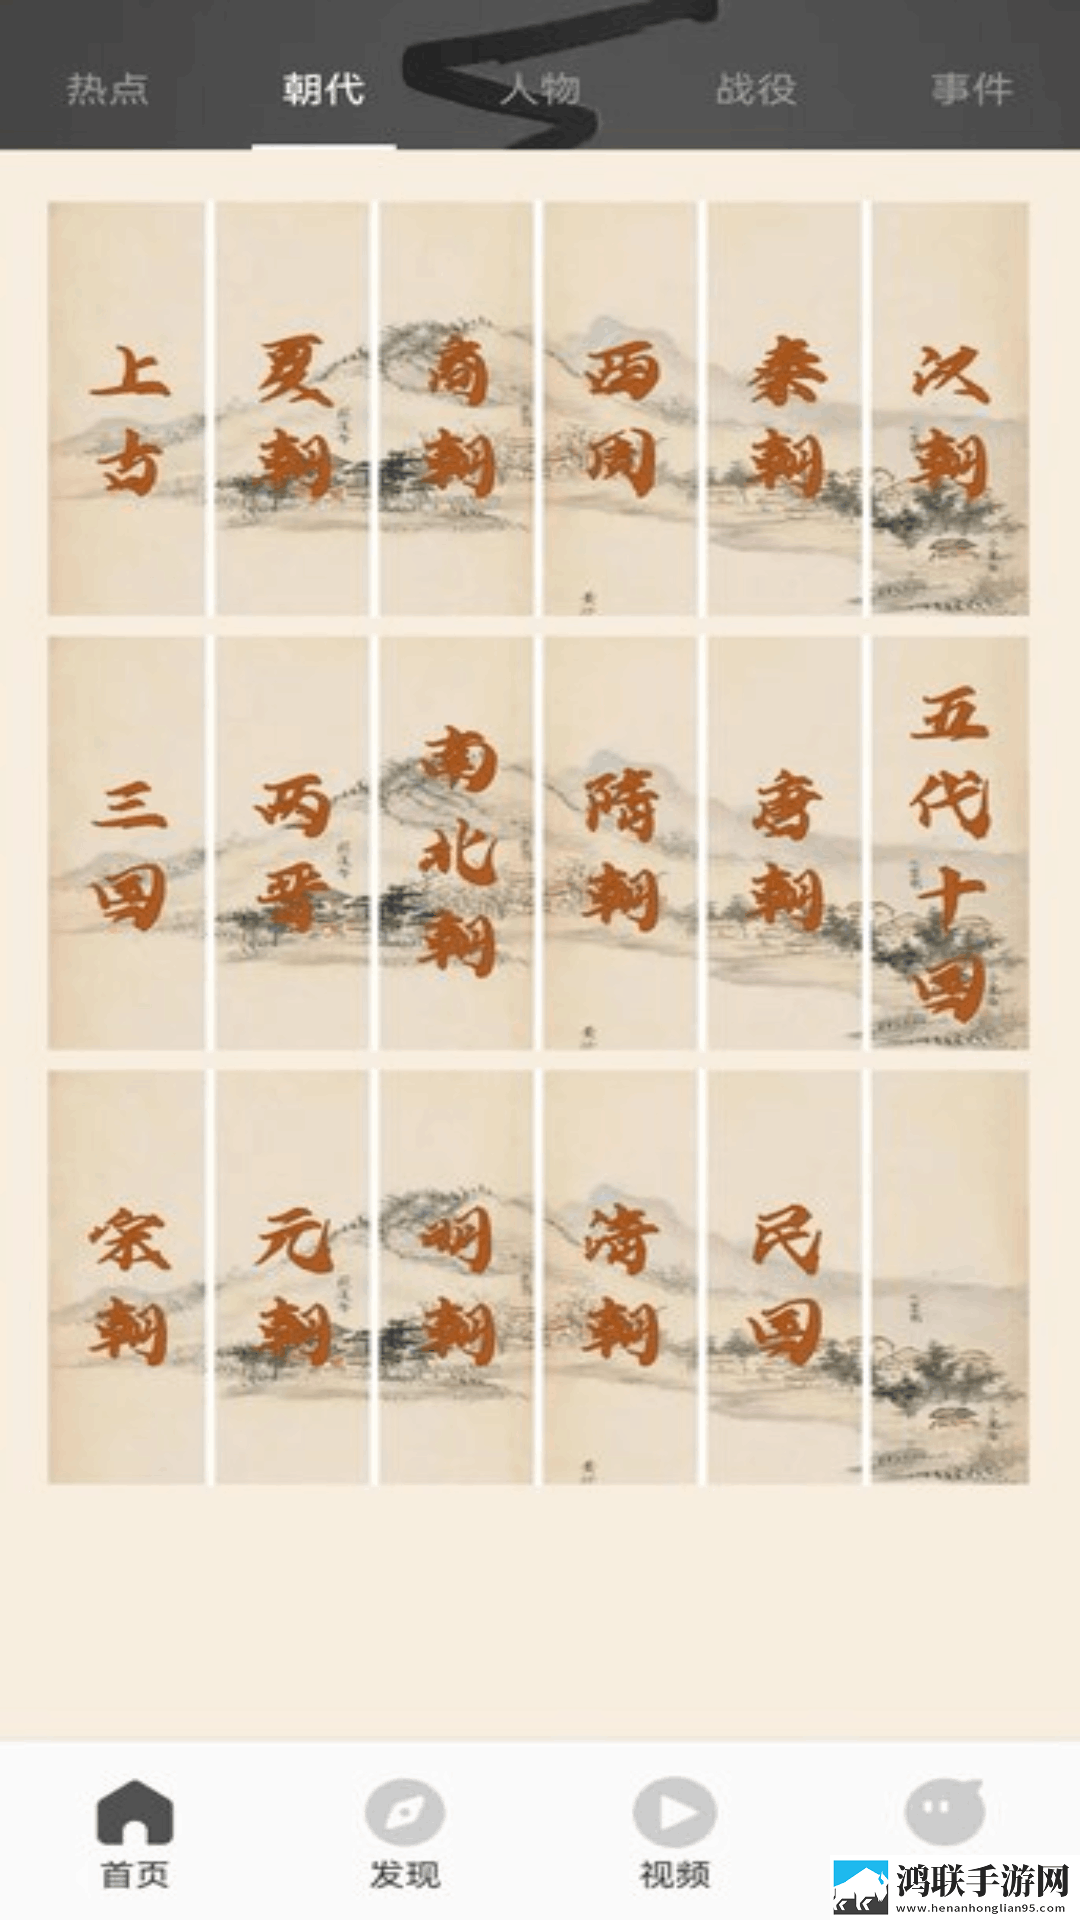 热点 朝代 人物 战役 事件
上古 夏朝 商朝 西周 秦朝 汉朝
三国 两晋 南北朝 隋朝 唐朝 五代十国
宋朝 元朝 明朝 清朝 民国
首页 发现 视频
鸿联手游网
www.henanhonglian95.com